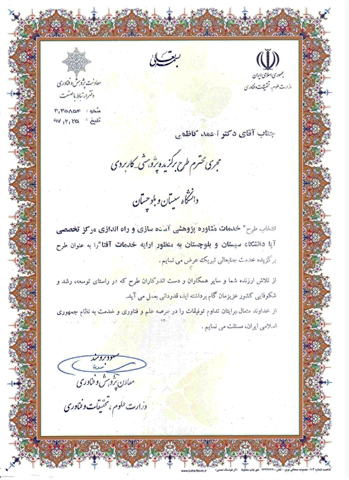 بسمه تعالی
جمهوری اسلامی ایران
وزارت علوم، تحقیقات و فناوری
معاونت پژوهش و فناوری
دفتر ارتباط با صنعت
شماره
تاریخ ۹۷,۲,۲۵
جناب آقای دکتر احمد کاظمی
مجری محترم طرح برگزیده پژوهشی_کاربردی
دانشگاه سیستان و بلوچستان
انتخاب طرح" خدمات مشاوره پژوهشی آماده سازی و راه اندازی مرکز تخصصی
آپا دانشگاه سیستان و بلوچستان به منظور ارایه خدمات آفتا"را به عنوان طرح
برگزیده خدمت جنابعالی تبریک عرض می نمایم.
از تلاش ارزنده شما و سایر همکاران و دست اندرکاران طرح که در راستای توسعه، رشد و
شکوفایی کشور عزیزمان گام برداشته اید، قدردانی بعمل می آید.
از خداوند متعال برایتان تداوم توفیقات را در عرصه علم و فناوری و خدمت به نظام جمهوری
اسلامی ایران، مسئلت می نمایم.
مسعود برومند
معاون پژوهش و فناوری
وزارت علوم، تحقیقات و فناوری